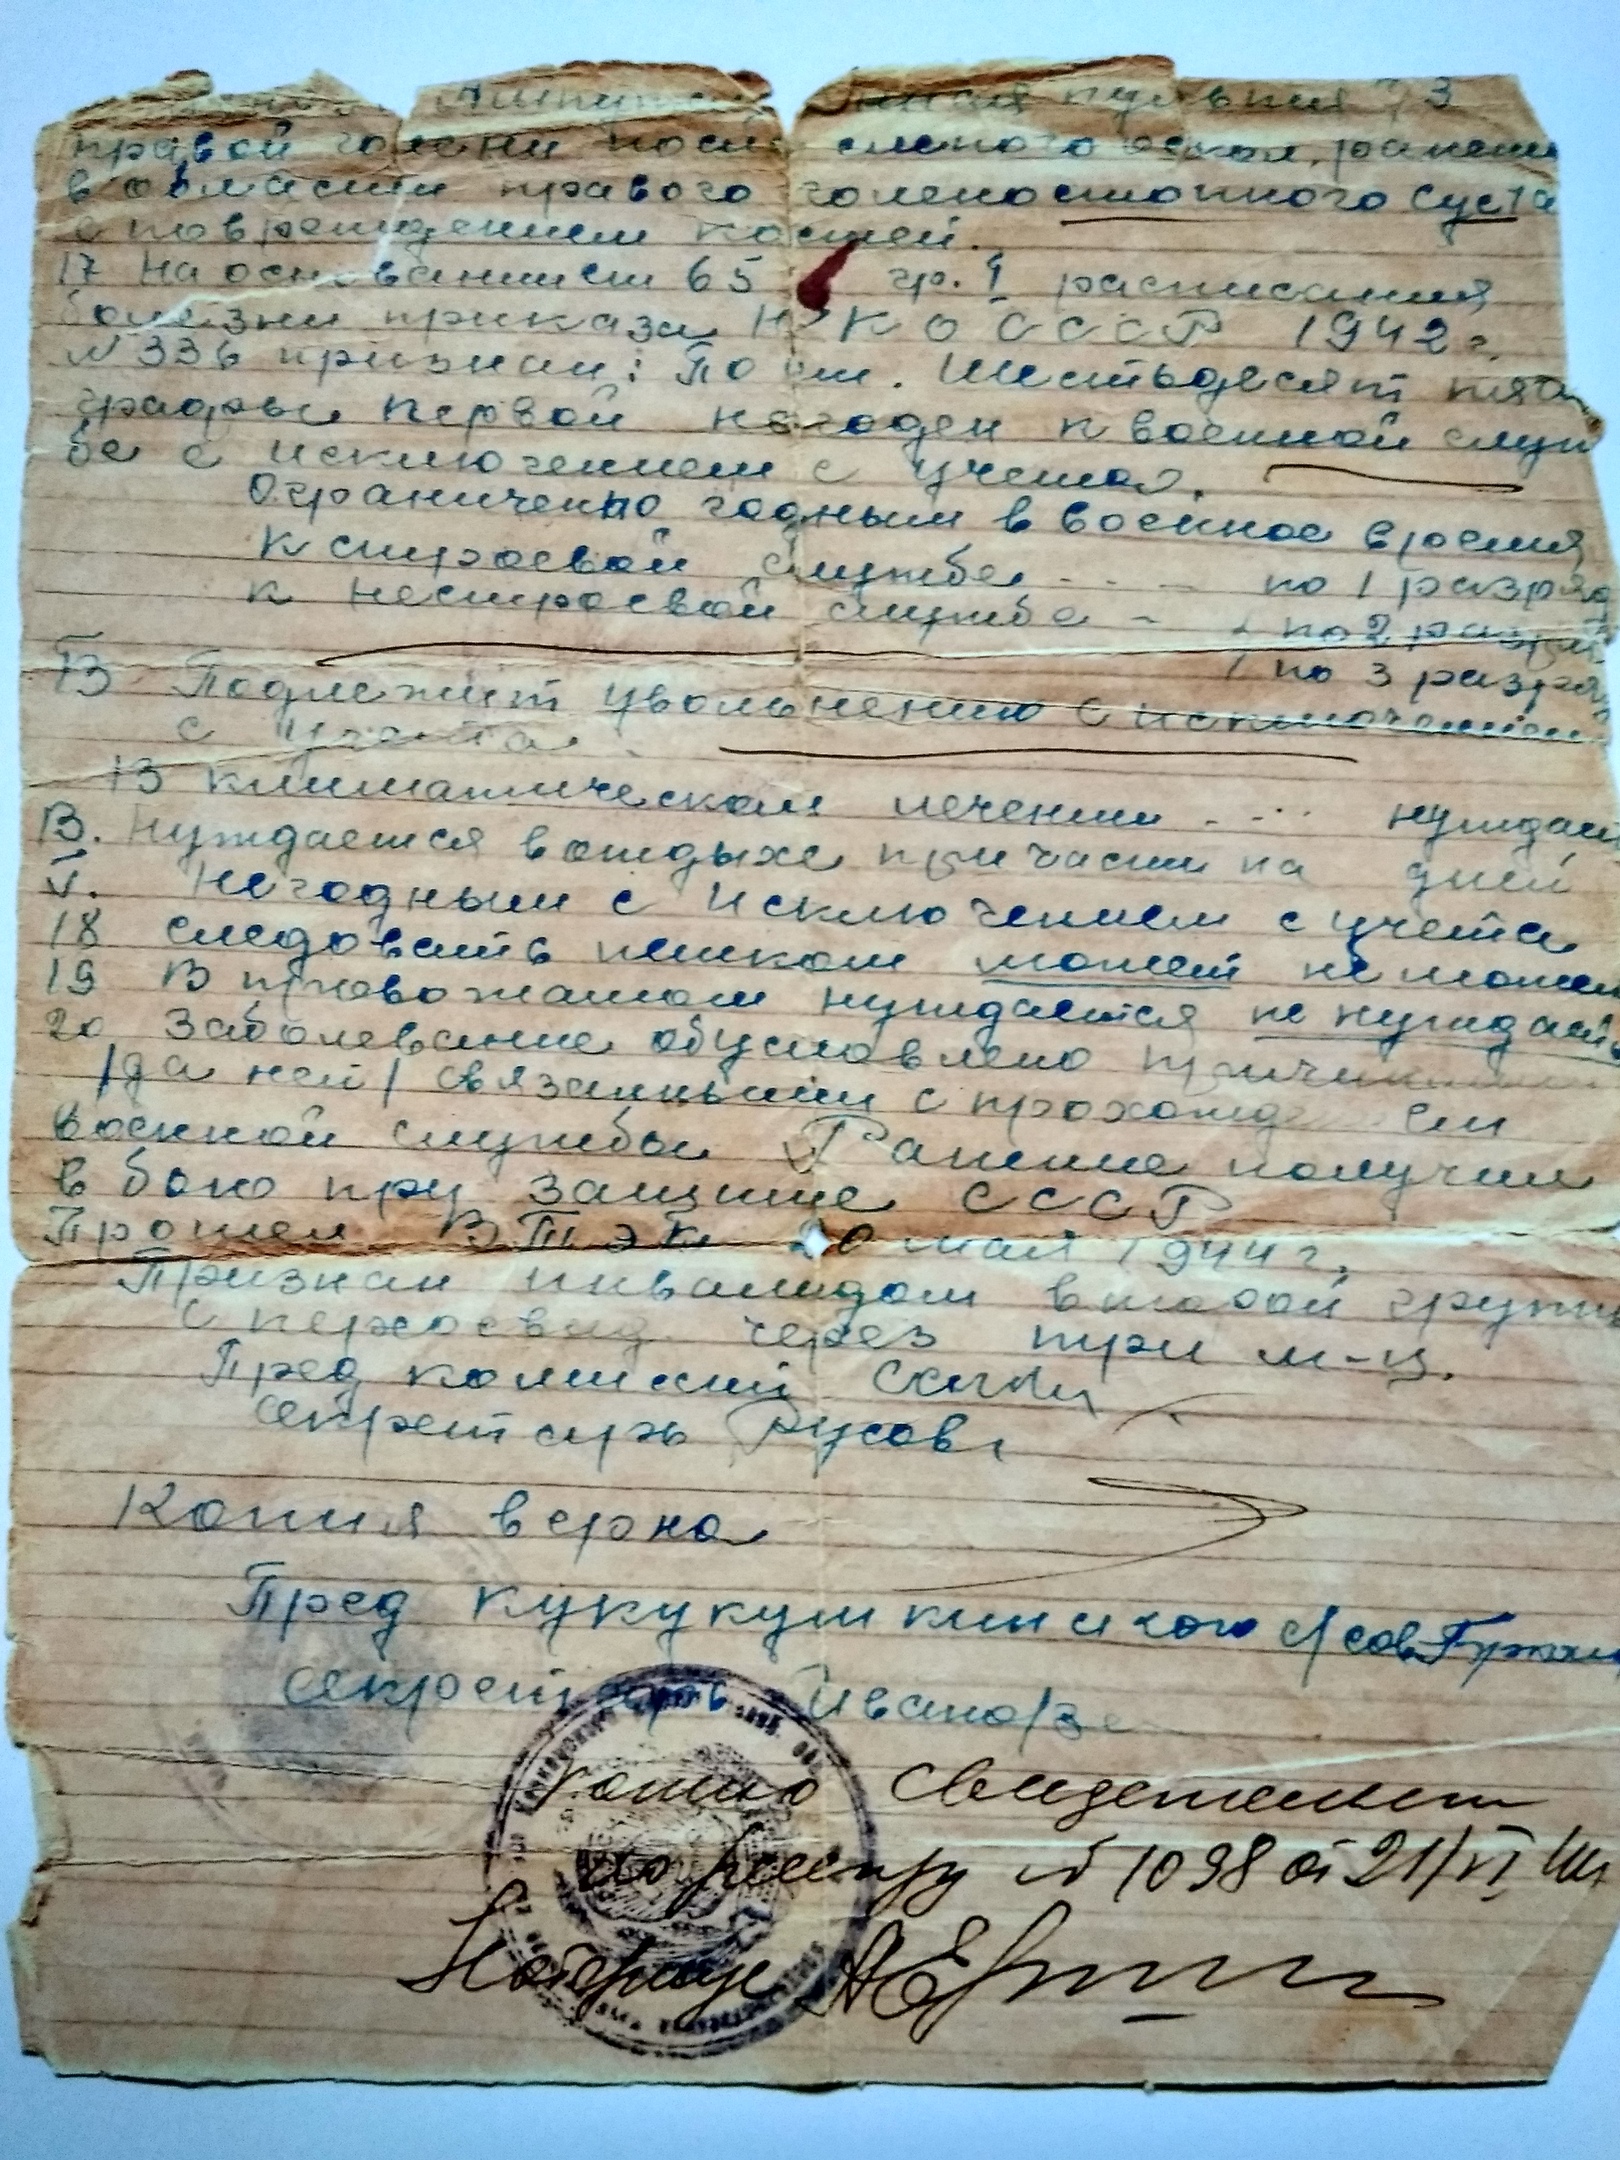 правой голени после слепого оскол. ранени
в области правого голеностопного суста
с повреждением костей.
17 На основании ст 65 гр. I расписания
болезни приказа Н К О СССР 1942 г.
N 336 признан: По ст. Шестьдесят пято
графы первой негоден к военной служ
бе с исключением с учета.
Ограничено годным в военное время
к строевой службе - - - по 1 разряд
к нестроевой службе - / по 2 разряд
/ по 3 разряд
Б Подлежит увольнению с исключением
с учета.
В климатическом лечении - - - нуждает
В. Нуждается в отдыхе при части на дней
V. Негодным с исключением с учета
18 следовать пешком может не может
19 В провожатом нуждается не нуждается
20 Заболевание обусловлено причинами
/да нет/ связанными с прохожд ем
военной службы Ранение получил
в бою при защите СССР
Прошел ВТЭК 20 мая 1944 г.
Признан инвалидом второй группы
с переосвид. через три м-ц.
Пред комиссии
секретарь Русов
Копия верна
Пред кукукушкинского с/сов
секретарь Иванов/з
копию свидетельст
по реестру № 1098 от 21/VI
Нотариус